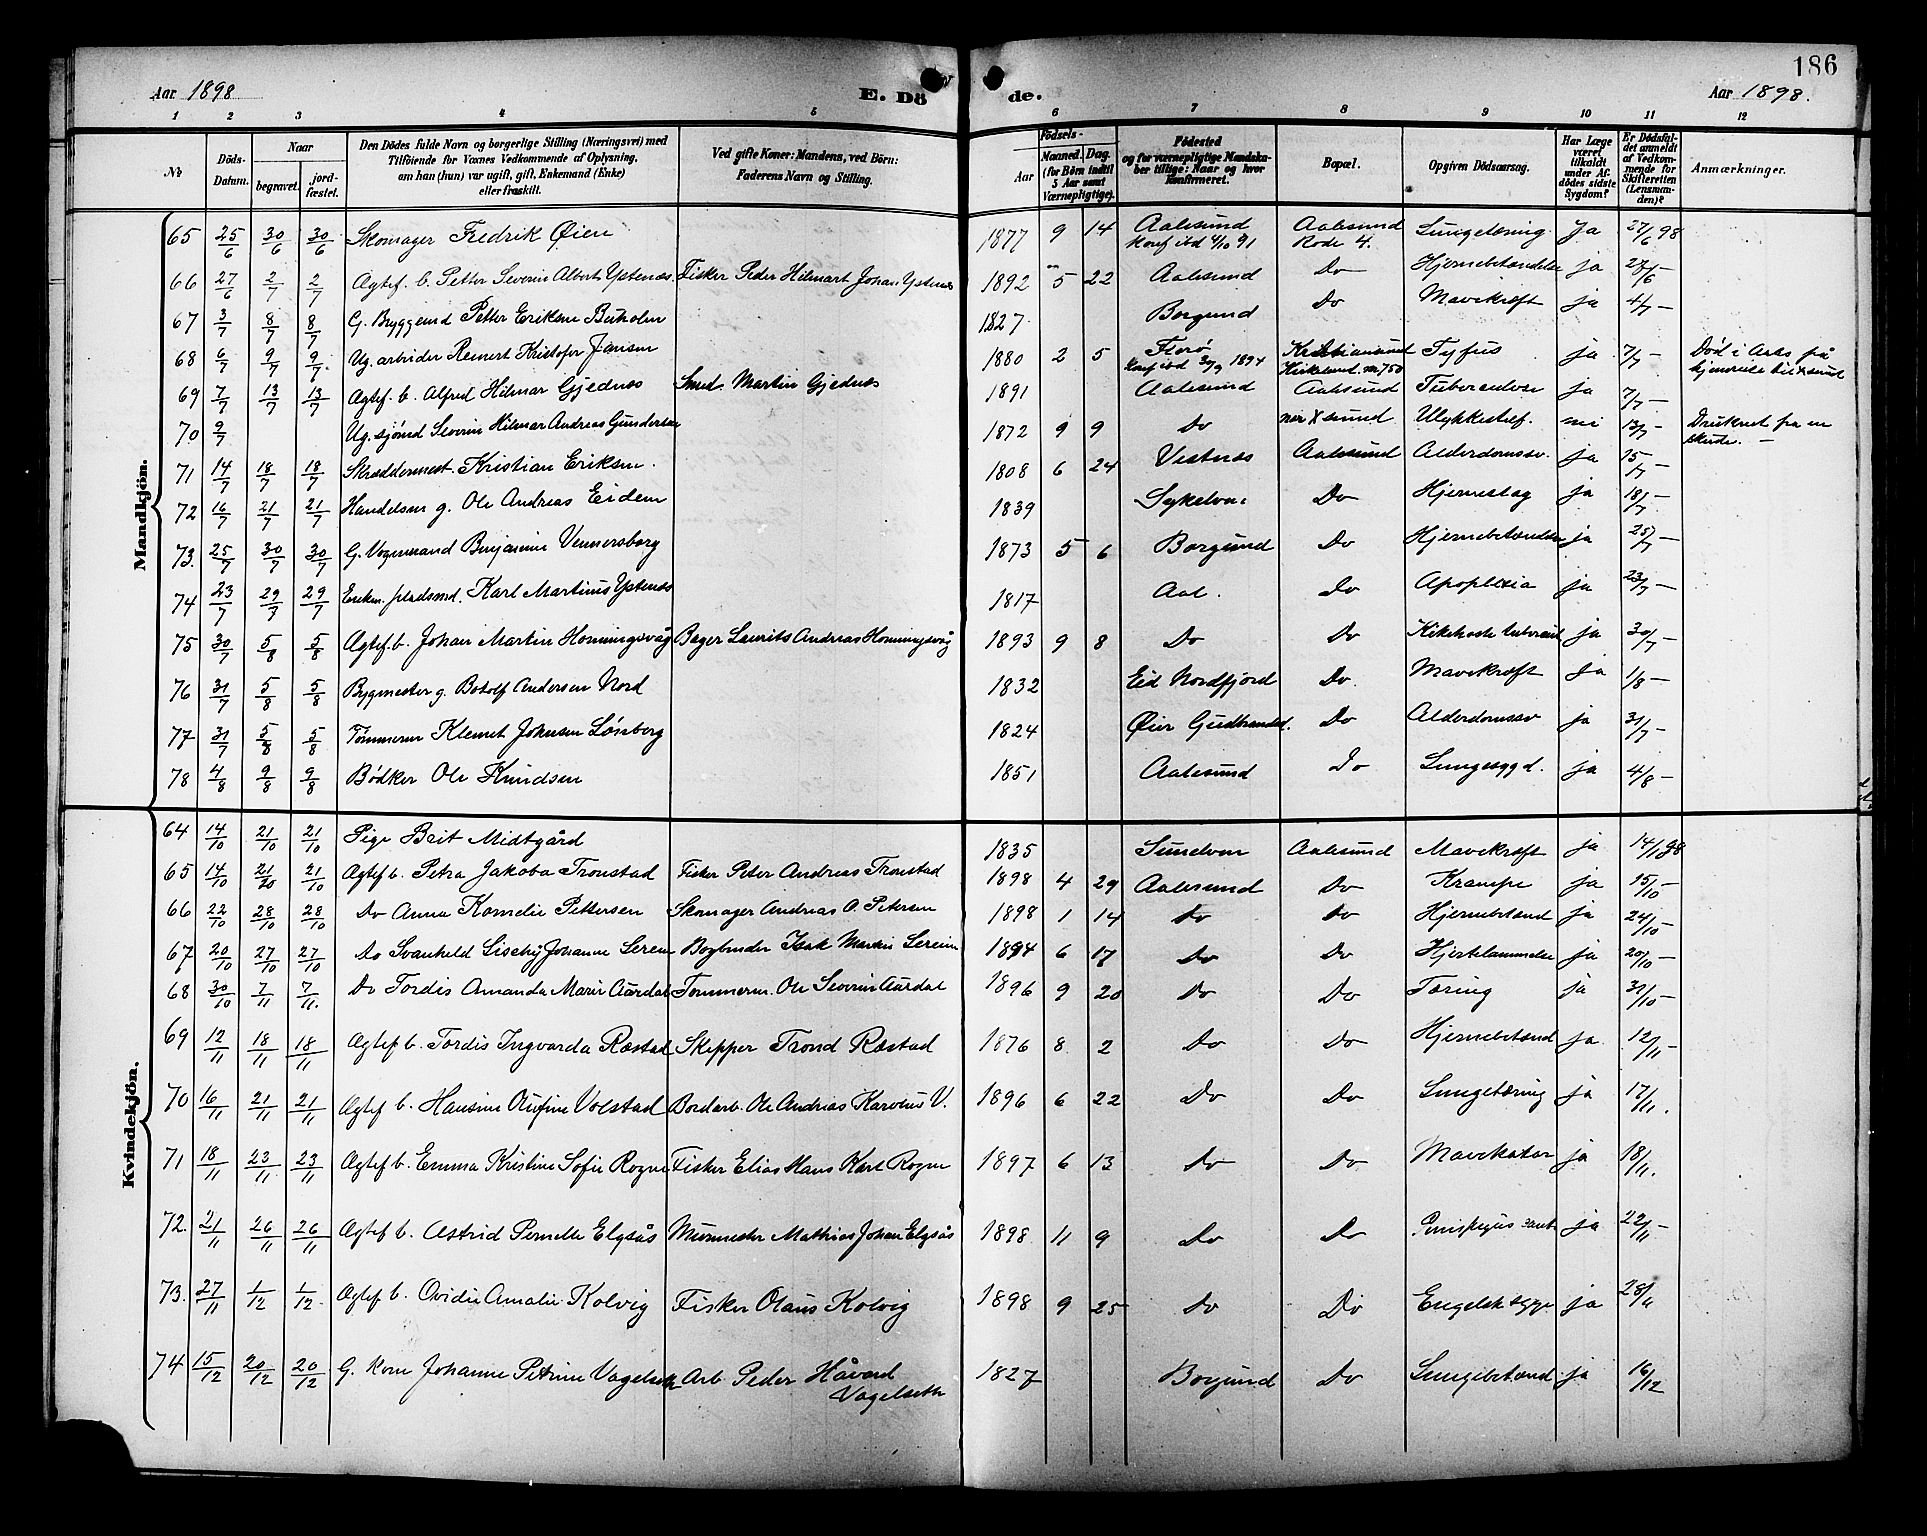 186
Aar 1898
E. Dö de.
Aar 1898.
1 2 3 4 5 6 7 8 9 10 11 12
No
Döds-Datum.
Naar
begravet.
jordfæstet.
Den Dödes fulde Navn og borgerlige Stilling (Næringsvei) med
Tilföiende for Voxnes Vedkommende af Oplysning,
om han (hun) var ugift, gift, Enkemand (Enke)
eller fraskilt.
Ved gifte Koner: Mandens, ved Börn:
Faderens Navn og Stilling.
Födsels-
Aar
Maaned. Dag.
(for Börn indtil
5 Aar samt
Værnepligtige).
Födested
og for værnepligtige Mandska-
ber tillige: Naar og hvor
Konfirmeret.
Bopæl.
Opgiven Dödsaarsag.
Har Læge
været
tilkaldt
under Af-
dödes sidste
Sygdom?
Er Dödsfal-
det anmeldt
af Vedkom-
mende for
Skifteretten
(Lensman-
den)?
Anmærkninger.
Mandkjön.
65 25/6 30/6 30/6 Skomager Fredrik Øien 1877 9 14 Aalesund Aalesund Lungetæring Ja 27/6 98
Konf ibd 4/10 91 Rode 4.
66 27/6 2/7 2/7 Ægtef. b. Petter Severin Albert Ystenæs Fisker Peder Hilmart Johan Ystenæs 1892 5 22 Aalesund Do Hjernebetændelse ja 27/6 -
67 3/7 8/7 8/7 G. Byggemd Petter Eriksen Buholm 1827 Borgund Do Mavekræft ja 4/7 -
68 6/7 9/7 9/7 Ug. arbeider Reinert Kristofer Jansen 1880 2 5 Florø Kristiansund Tyfus ja 7/7 - Død i Aales på
Konf ibd 1894 Kirkeland nr. 750 hjemreise til Xsund
69 7/7 13/7 13/7 Ægtef. b. Alfred Hilmar Gjednæs Smed. Martin Gjednæs 1891 Aalesund Aalesund Tuberculose ja 7/7 -
70 9/7 Ug. sjømd Severin Hilmar Andreas Gundersen 1872 9 9 Do nær Xsund Ulykkestilf. nei 13/7 - Druknet fra en
skøite. -
71 14/7 18/7 18/7 Skræddermest. Kristian Eriksen. 1808 6 24 Vestnæs Aalesund Alderdomssv. ja 15/7 -
72 16/7 21/7 21/7 Handelsm g. Ole Andreas Eidem 1839 Sykelven Do Hjerneslag ja 18/7 -
73. 25/7 30/7 30/7 G. Vognmand Benjamin Vennersborg 1873 5 6 Borgund Do Hjernebetændelse ja 25/7 -
74 23/7 29/7 29/7 Enkem. pladsmd. Karl Martinus Ystenæs 1817 Aal. Do Apoplexia ja 23/7 -
75 30/7 5/8 5/8 Ægtef. b. Johan Martin Honningsvåg Bager Laurits Andreas Honningsvåg 1893 9 8 Do Do Kikehoste ja 30/7 -
76 31/7 5/8 5/8 Bygmester g. Botolf Andersen Nord 1832 Eid Nordfjord Do. Mavekræft Ja 1/8 -
77 31/7 5/8 5/8 Tømmerm Klemet Johnsen Løssborg 1824 Øier Gudbrandsd. Do Alderdomssv ja 31/7 -
78 4/8 9/8 9/8 Bødker Ole Knudsen 1851 Aalesund Do Lungesygd. ja 4/8 -
Kvindekjön.
64 14/10 21/10 21/10 Pige Brit Midtgård 1835 Sunelven Aalesund Mavekræft ja
65 14/10 21/20 21/10 Ægtef b. Petra Jakoba Tronstad Fisker Peter Andreas Tronstad 1898 4 29 Aalesund Do Krampe ja 15/10 -
66 22/10 28/10 28/10 Do Anna Kornelie Pettersen Skomager Andreas O. Petersen 1898 1 14 Do Do Hjernebetænd ja 24/10 -
67 20/10 27/10 27/10 Do Svanhild Johanne Serem Bogbinder Isak Martin Sereim 1894 6 17 Do Do Hjertelammelse ja 20/10 -
68 30/10 7/11 7/11. Do Tordis Amanda Marie Aurdal Tommerm. Ole Severin Aurdal 1896 9 20 Do Do Tæring ja 31/10 -
69 12/11 18/11 18/11 Ægtef b. Tordis Ingvarda Ræstad Skipper Trond Ræstad 1876 8 2 Do Do Hjernebetænd ja 12/11 -
70 16/11 21/11 21/11 Ægtef b. Hansine Olufine Volstad Bordarb. Ole Andreas Karolius V. 1896 6 22 Do Do Lungetæring ja 17/11.
71 18/11 23/11 23/11 Ægtef b. Emma Kristine Sofie Rogne Fisker Elias Hans Karl Rogne 1897 6 13 Do Do Mavekatar ja 18/11.
72. 21/11 26/11 26/11 Ægtef b. Astrid Pernelle Elgsås Murmester Mathias Johan Elgsås 1898 11 9 Do Do ja 22/11 -
73. 27/11 1/12 1/12. Ægtef b. Ovidie Amalie Kolvig Fisker Olaus Kolvig 1898 9 25 Do Do Engelsk syge ja 28/11
74 15/12 20/12 20/12 G. kone Johanne Petrine Vagelseth Arb Peder Håvard 1827 Borgund Do Lungebetænd ja 16/12
Vagelseth